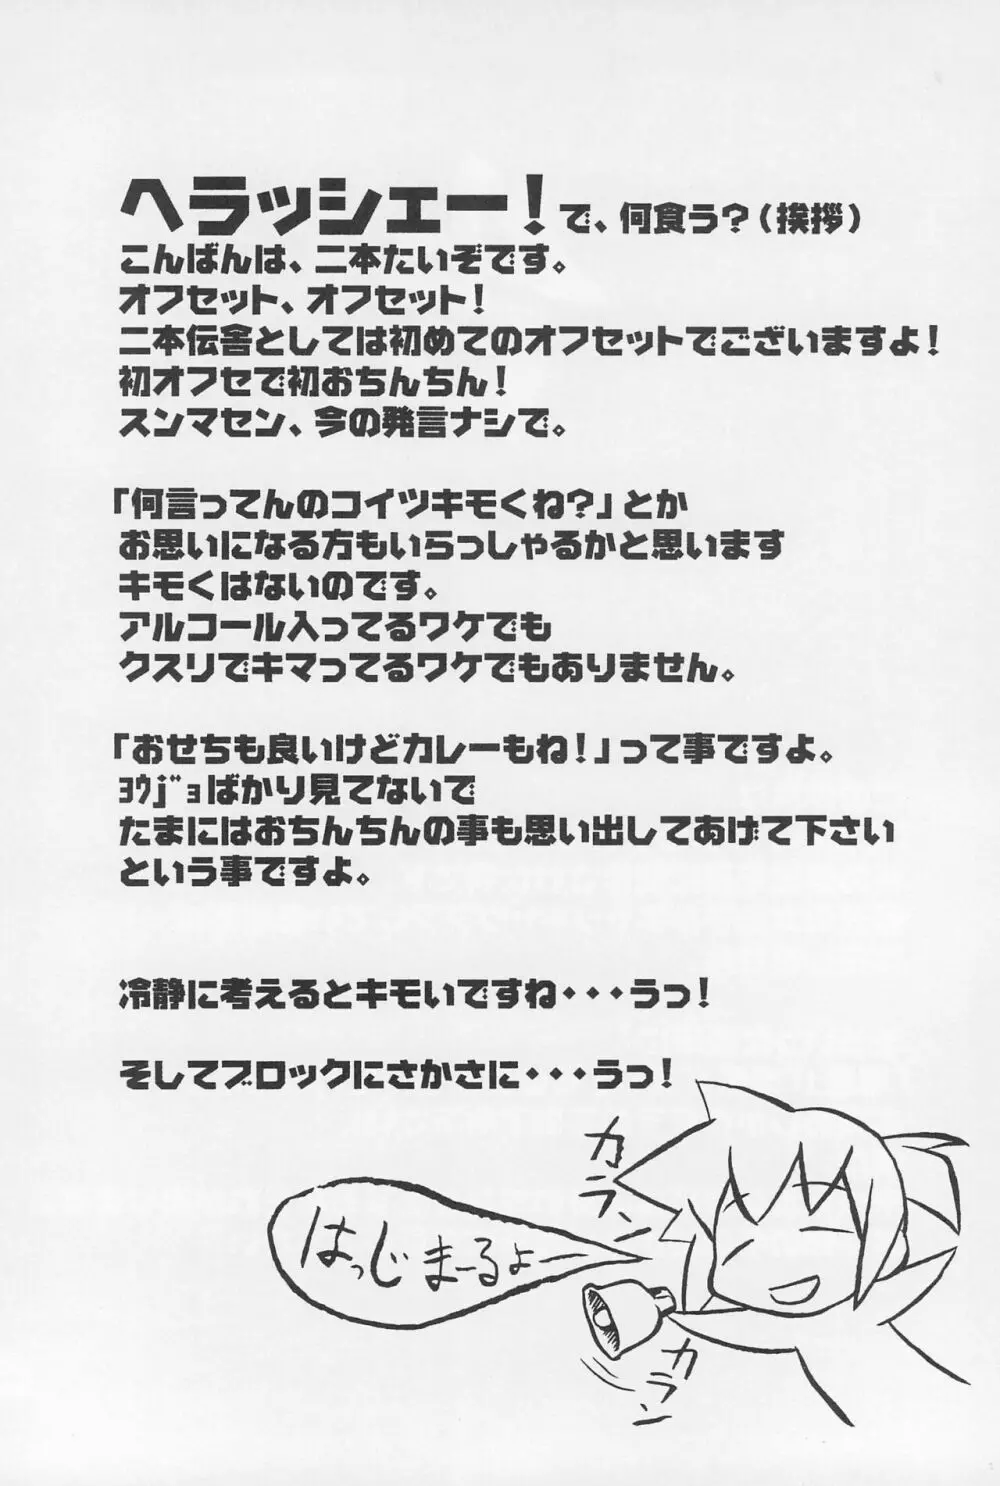 ヘラッシェー!で、何食う?(挨拶)
こんばんは、二本たいぞです。
オフセット、オフセット!
二本伝舎としては初めてのオフセットでございますよ!
初オフセで初おちんちん!
スンマセン、今の発言ナシで。
「何言ってんのコイツキモくね?」とか
お思いになる方もいらっしゃるかと思います
キモくはないのです。
アルコール入ってるワケでも
クスリでキマってるワケでもありません。
「おせちも良いけどカレーもね!」って事ですよ。
ﾖｳj゛ｮばかり見てないで
たまにはおちんちんの事も思い出してあげて下さい
という事ですよ。
冷静に考えるとキモいですね・・・うっ!
そしてブロックにさかさに・・・うっ!
カラン
はっじまーるよー
カラン